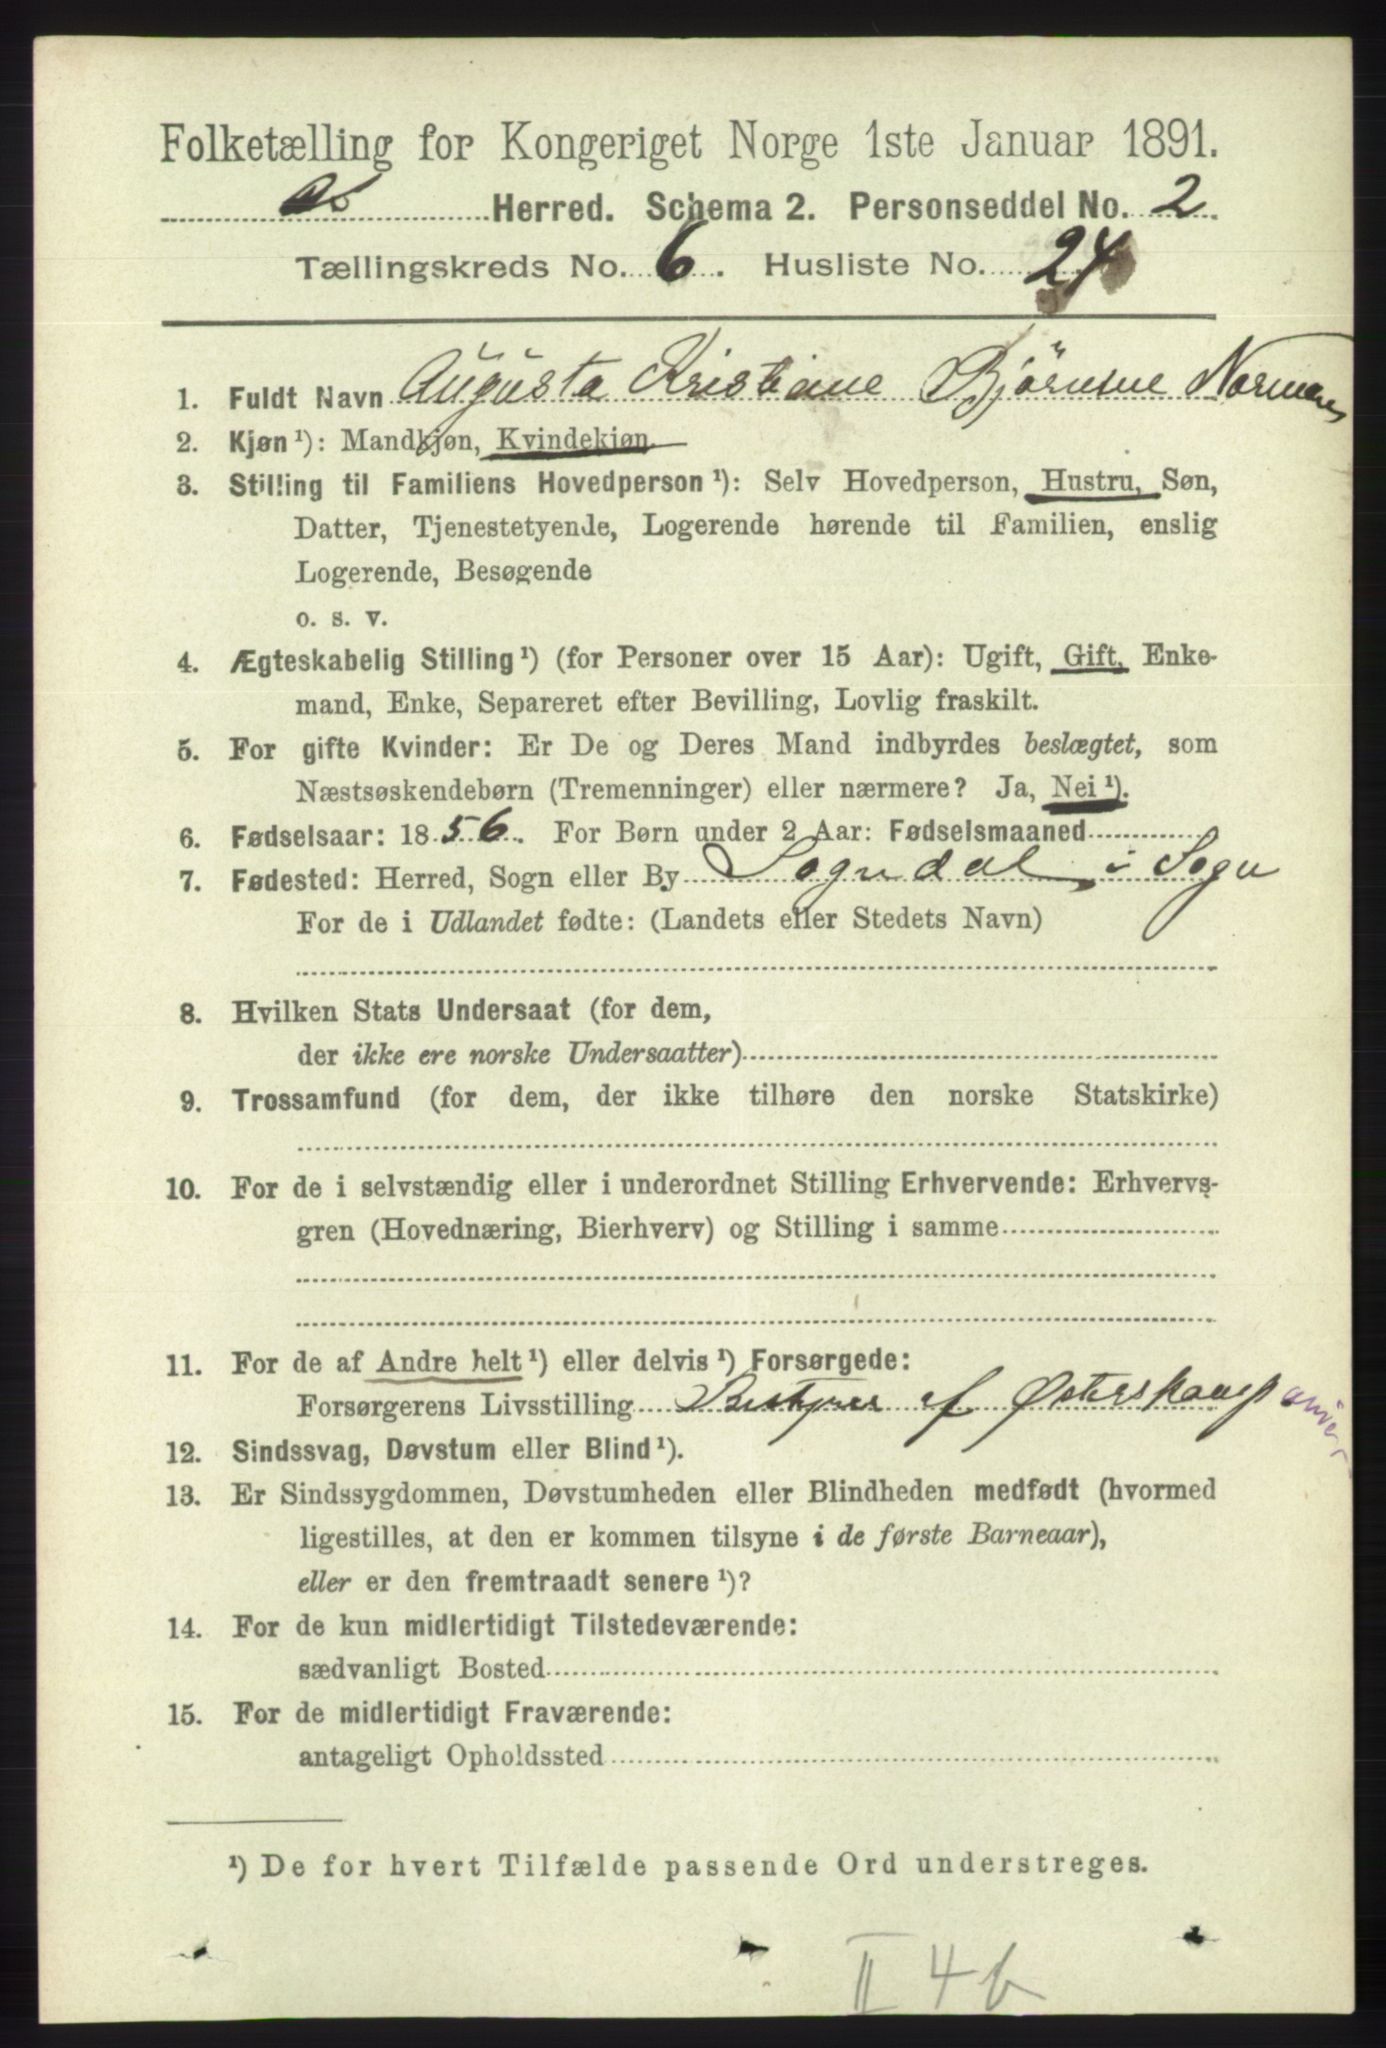 Folketælling for Kongeriget Norge 1ste Januar 1891.
Os Herred. Schema 2. Personseddel No. 2
Tællingskreds No. 6. Husliste No. 24
1. Fuldt Navn Augusta Kristiane Bjørnsne
2. Kjøn¹): Mandkjøn, Kvindekjøn
3. Stilling til Familiens Hovedperson¹): Selv Hovedperson, Hustru, Søn,
Datter, Tjenestetyende, Logerende hørende til Familien, enslig
Logerende, Besøgende
o. s. v.
4. Ægteskabelig Stilling¹) (for Personer over 15 Aar): Ugift, Gift, Enke-
mand, Enke, Separeret efter Bevilling, Lovlig fraskilt.
5. For gifte Kvinder: Er De og Deres Mand indbyrdes beslægtet, som
Næstsøskendebørn (Tremenninger) eller nærmere? Ja, Nei¹).
6. Fødselsaar: 1856. For Børn under 2 Aar: Fødselsmaaned
7. Fødested: Herred, Sogn eller By Sogndal i Sogn
For de i Udlandet fødte: (Landets eller Stedets Navn)
8. Hvilken Stats Undersaat (for dem,
der ikke ere norske Undersaatter)
9. Trossamfund (for dem, der ikke tilhøre den norske Statskirke)
10. For de i selvstændig eller i underordnet Stilling Erhvervende: Erhvervs-
gren (Hovednæring, Bierhverv) og Stilling i samme
11. For de af Andre helt¹) eller delvis¹) Forsørgede:
Forsørgerens Livsstilling Bestyrer af Østerskomp
12. Sindssvag, Døvstum eller Blind¹).
13. Er Sindssygdommen, Døvstumheden eller Blindheden medfødt (hvormed
ligestilles, at den er kommen tilsyne i de første Barneaar),
eller er den fremtraadt senere¹)?
14. For de kun midlertidigt Tilstedeværende:
sædvanligt Bosted
15. For de midlertidigt Fraværende:
antageligt Opholdssted
¹) De for hvert Tilfælde passende Ord understreges.
II 4b